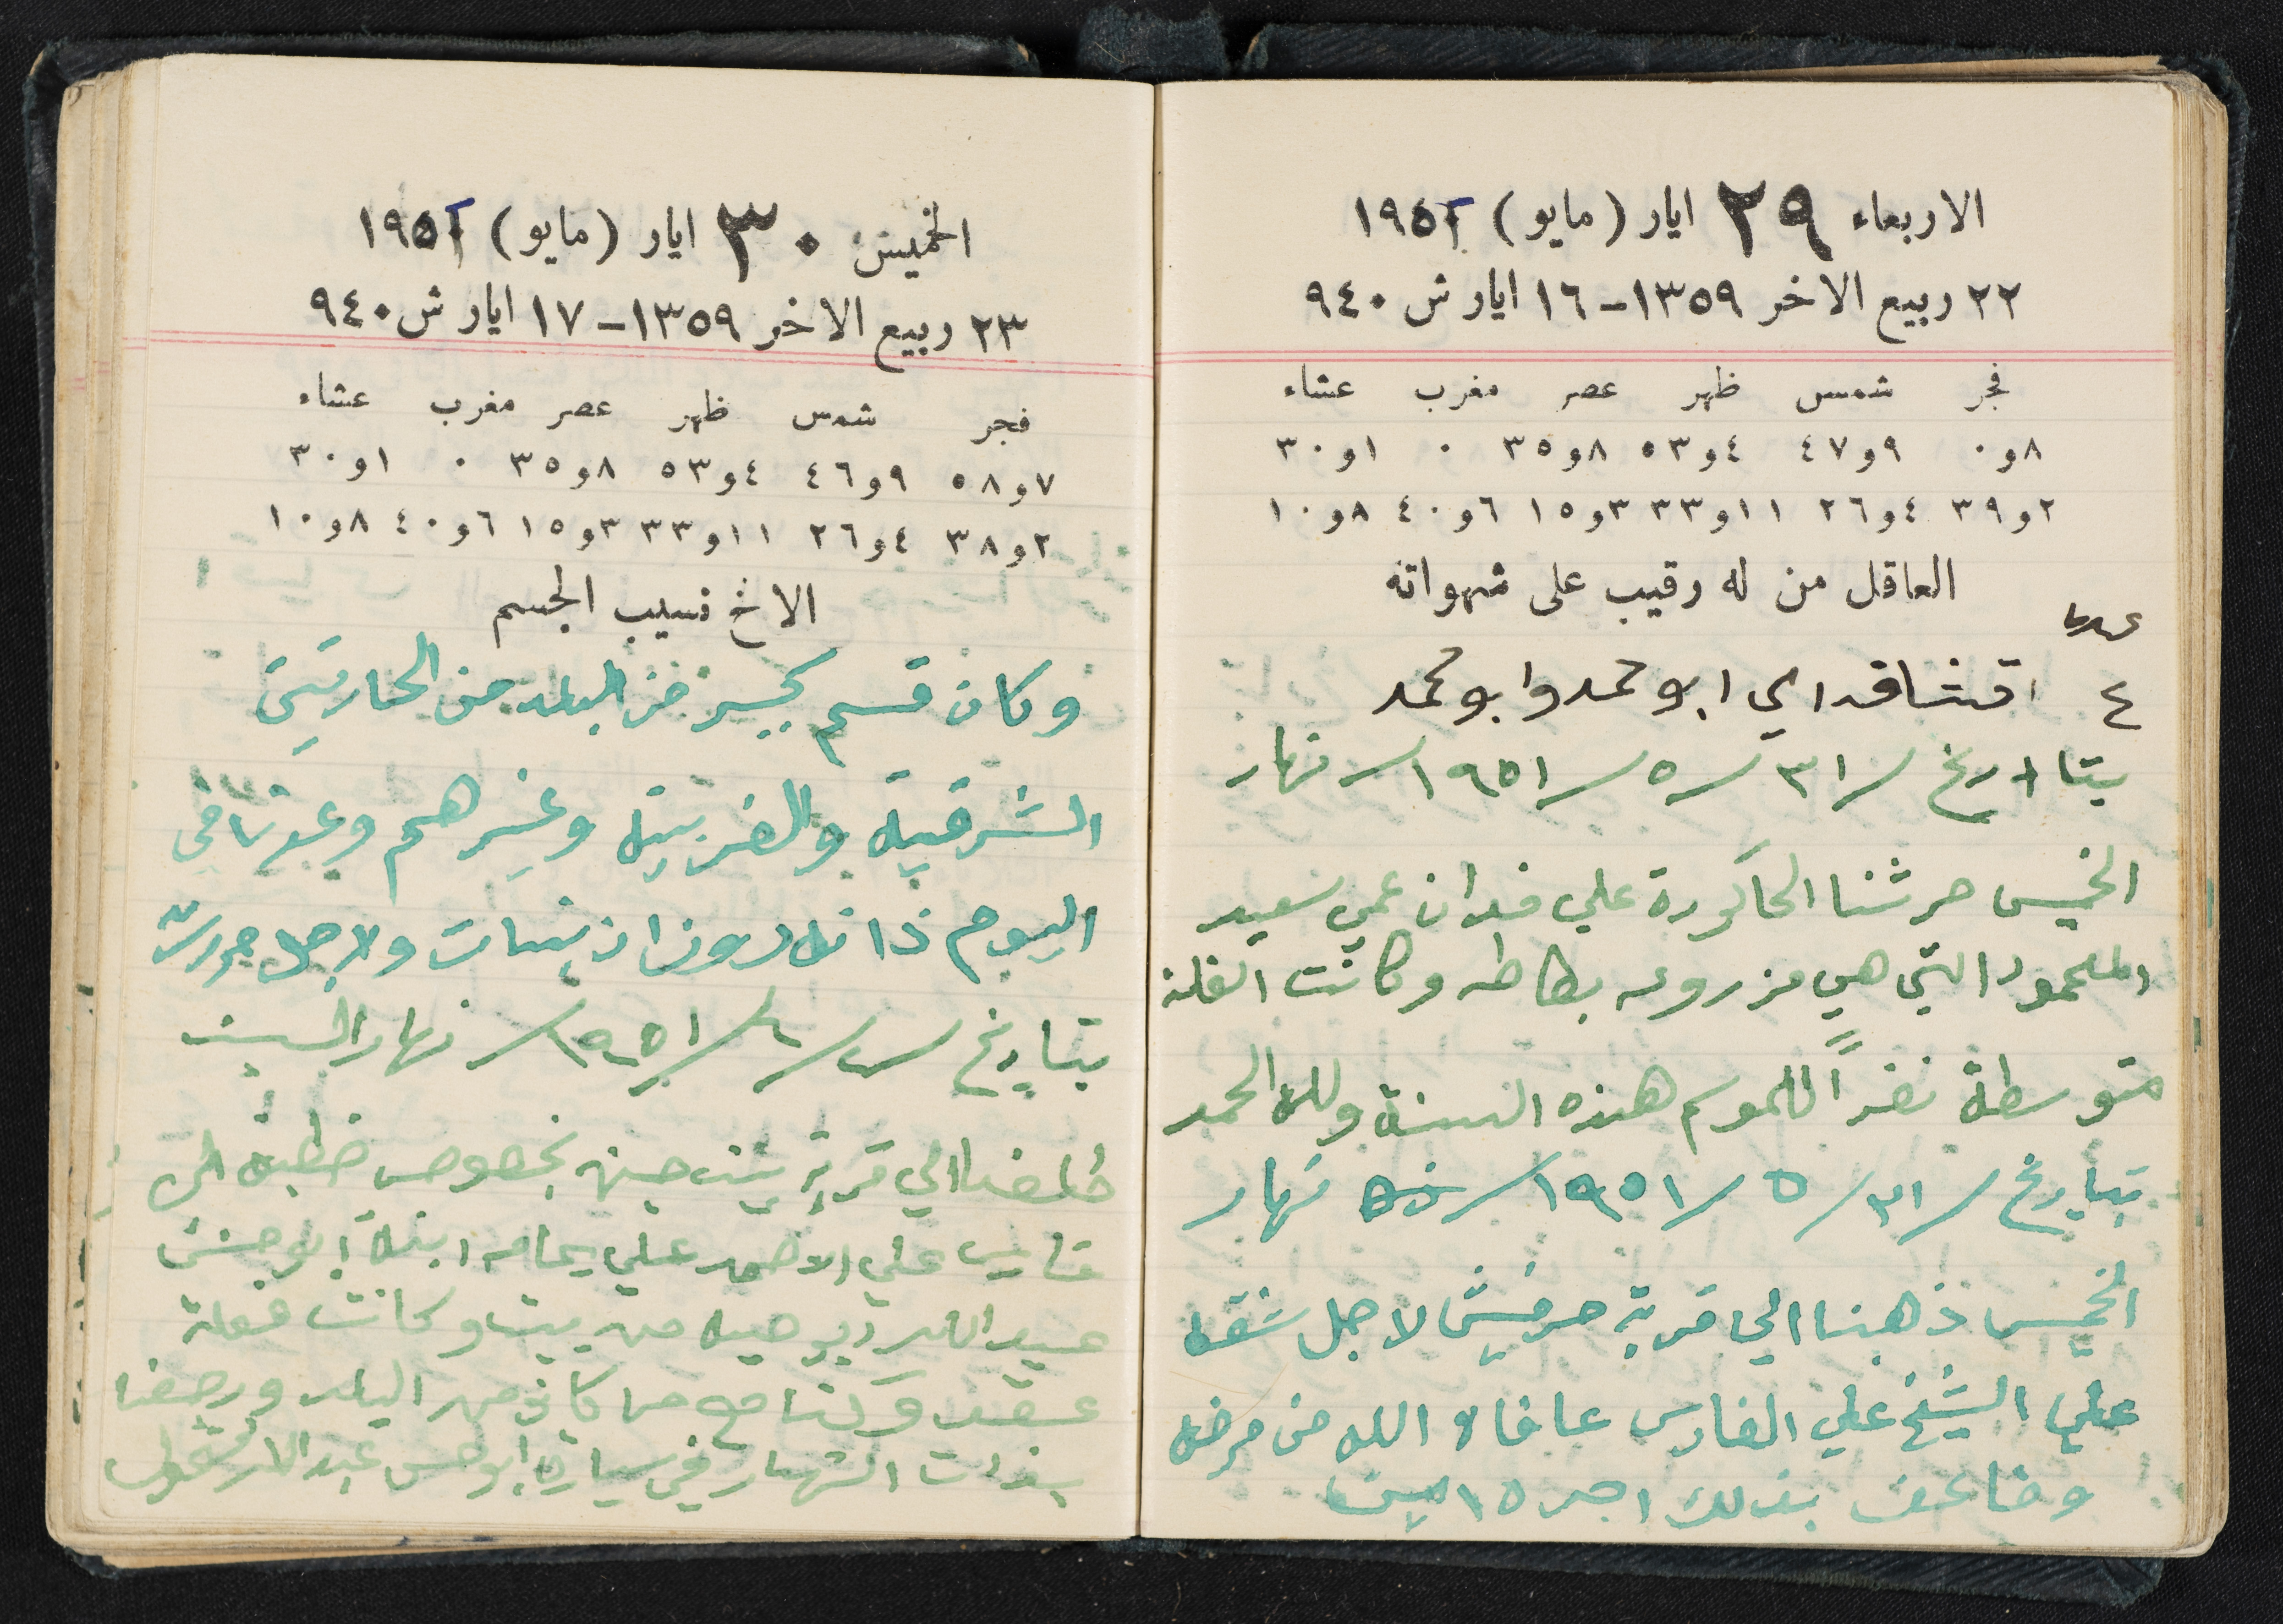 الاربعاء ٢٩ ايار (مايو) ١٩٥١
٢٢ ربيع الاخر ١٣٥٩ - ١٦ ايار ش ٩٤٠
فجر شمس ظهر عصر مغرب عشاء
٨و٠ ٩و٤٧ ٤و٥٣ ٨و٣٥ ٠ ١و٣٠
٢و٣٩ ٤و٢٦ ١١و٣٣ ٣و١٥ ٦و٤٠ ٨و١٠
العاقل من له رقيب على شهواته
عدد
٤ ابو حمد وابو محمد
بتاريخ /٣١/ ٥/ ١٩٥١/ نهار
الخميس حرثنا الحاكورة علي فدان عمي سعيد
المحمود التي هي مزروعه بطاطه وكانت الغلة
متوسطة نظراً للموسم هذه السنة ولله الحمد
بتاريخ /٣١/ ٥/ ١٩٥١/ نهار
الخميس ذهبنا الي قرية حرفيش لاجل شقه
علي الشيخ علي الفارس عافاه الله من مرضه
بذلك اجر ١٥
الخميس ٣٠ ايار (مايو) ١٩٥١
٢٣ ربيع الاخر ١٣٥٩ - ١٧ ايار ش ٩٤٠
فجر شمس ظهر عصر مغرب عشاء
٧و٥٨ ٩و٤٦ ٤و٥٣ ٨و٣٥ ٠ ١و٣٠
٢و٣٨ ٤و٢٦ ١١و٣٣ ٣و١٥ ٦و٤٠ ٨و١٠
الاخ نسيب الجسم
وكان قسم كبير من البلد من الحارتين
الشرقية والغربية وغيرهم وعدنا في
اليوم ذاته ولاجل
بتاريخ /٢/ ٦/ ١٩٥١/ نهار السبت
الي قرية بيت جن بخصوص خطبة
فارس علي الاحمد علي ابنة ابو حسن
عبد الله من بيت وكانت حفلة
عقد وكنا من البلد ورجعنا
بذات النهار في سيارة ابو حسن عبد الله